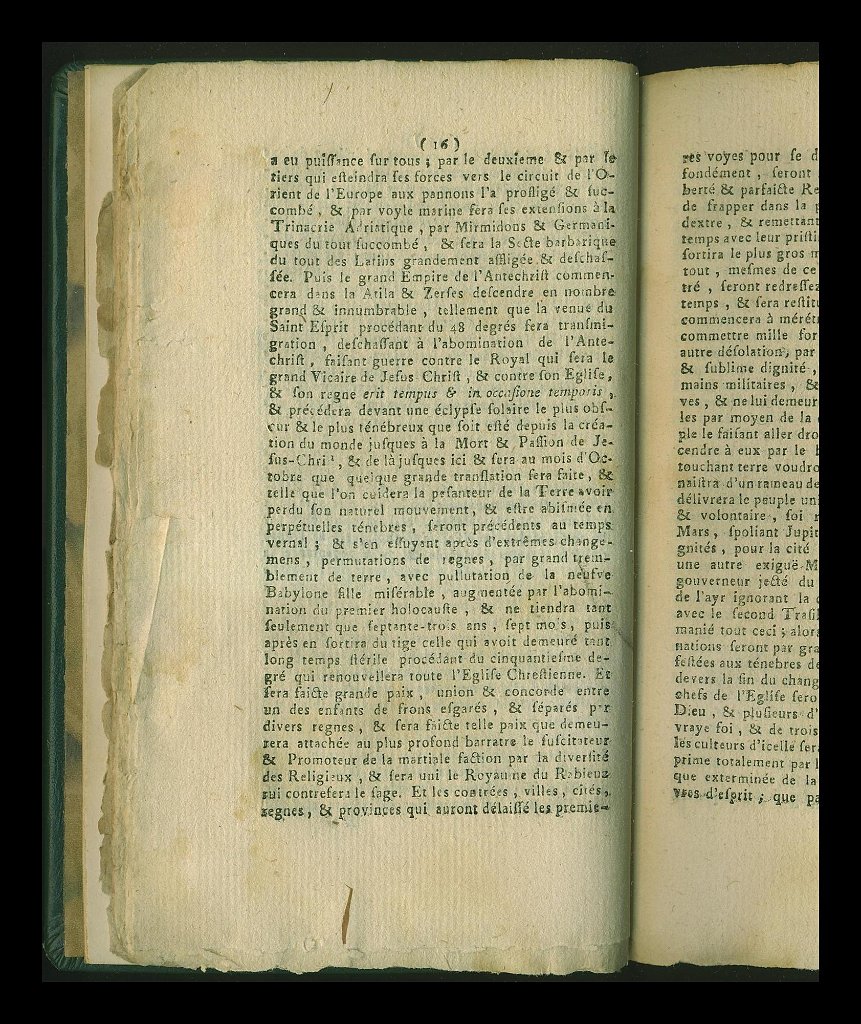 ( 16 )
a eu puiſſance ſur tous ; par le deuxieme & par le
tiers qui eſteindra ſes forces vers le circuit de l'O-
rient de l'Europe aux pannons l'a profligé & ſuc-
combé , & par voyle marine fera ſes extenſions à la
Trinacrie Adriatique , par Mirmidons & Germani-
ques du tout ſuccombé , & ſera la Secte barbarique
du tout des Latins grandement affligée & deſchaſ-
ſée. Puis le grand Empire de l'Antechriſt commen-
cera dans la Atila & Zerſes deſcendre en nombre
grand & innumbrable , tellement que la venue du
Saint Eſprit procédant du 48 degrés fera tranſmi-
gration , deſchaſſant à l'abomination de l'Ante-
chriſt , faiſant guerre contre le Royal qui ſera le
grand Vicaire de Jeſus-Chriſt , & contre ſon Egliſe,
& ſon regne erit tempus & in occaſione temporis ,
& précédera devant une éclypſe ſolaire le plus obſ-
cur & le plus ténébreux que ſoit eſté depuis la créa-
tion du monde juſques à la Mort & Paſſion de Je-
ſus-Chriſt , & de là juſques ici & ſera au mois d'Oc-
tobre que quelque grande tranſlation ſera faite, &
telle que l'on cuidera la peſanteur de la Terre avoir
perdu ſon naturel mouvement, & eſtre abiſmée en
perpétuelles ténebres , ſeront précédents au temps
vernal ; & s'en eſſuyant après d'extrêmes change-
mens , permutations de regnes , par grand trem-
blement de terre , avec pullutation de la neufve
Babylone fille miſérable , augmentée par l'abomi-
nation du premier holocauſte , & ne tiendra tant
ſeulement que ſeptante-trois ans , ſept mois , puis
après en ſortira du tige celle qui avoit demeuré tant
long temps ſtérile procédant du cinquantieſme de-
gré qui renouvellera toute l'Egliſe Chreſtienne. Et
ſera faicte grande paix , union & concorde entre
un des enfants de frons eſgarés , & ſéparés par
divers regnes , & ſera faicte telle paix que demeu-
rera attachée au plus profond barratre le ſuſcitateur
& Promoteur de la martiale faction par la diverſité
des Religieux , & ſera uni le Royaume du Rabieux
qui contrefera le ſage. Et les contrées , villes , cités,
regnes , & provinces qui auront délaiſſé les premie-
res voyes pour ſe d
fondément , ſeront
berté & parfaicte Re
de frapper dans la p
dextre , & remettant
temps avec leur priſti
ſortira le plus gros m
tout , meſmes de ce
tré , ſeront redreſſez
temps , & ſera reſtitu
commencera à mérét
commettre mille for
autre déſolation, par
& ſublime dignité ,
mains militaires , &
ves , & ne lui demeur
les par moyen de la
ple le faiſant aller dro
cendre à eux par le
touchant terre voudro
naiſtra d'un rameau de
délivrera le peuple uni
& volontaire , ſoi
Mars , ſpoliant Jupit
gnités , pour la cité
une autre exiguë M
gouverneur jecté du
de l'ayr ignorant la
avec le ſecond Traſi
manié tout ceci ; alors
nations ſeront par gra
feſtées aux ténebres de
devers la fin du chang
chefs de l'Egliſe ſero
Dieu , & pluſieurs d'
vraye foi , & de trois
les culteurs d'icelle ſer
prime totalement par l
que exterminée de la
vres d'eſprit ; que pa